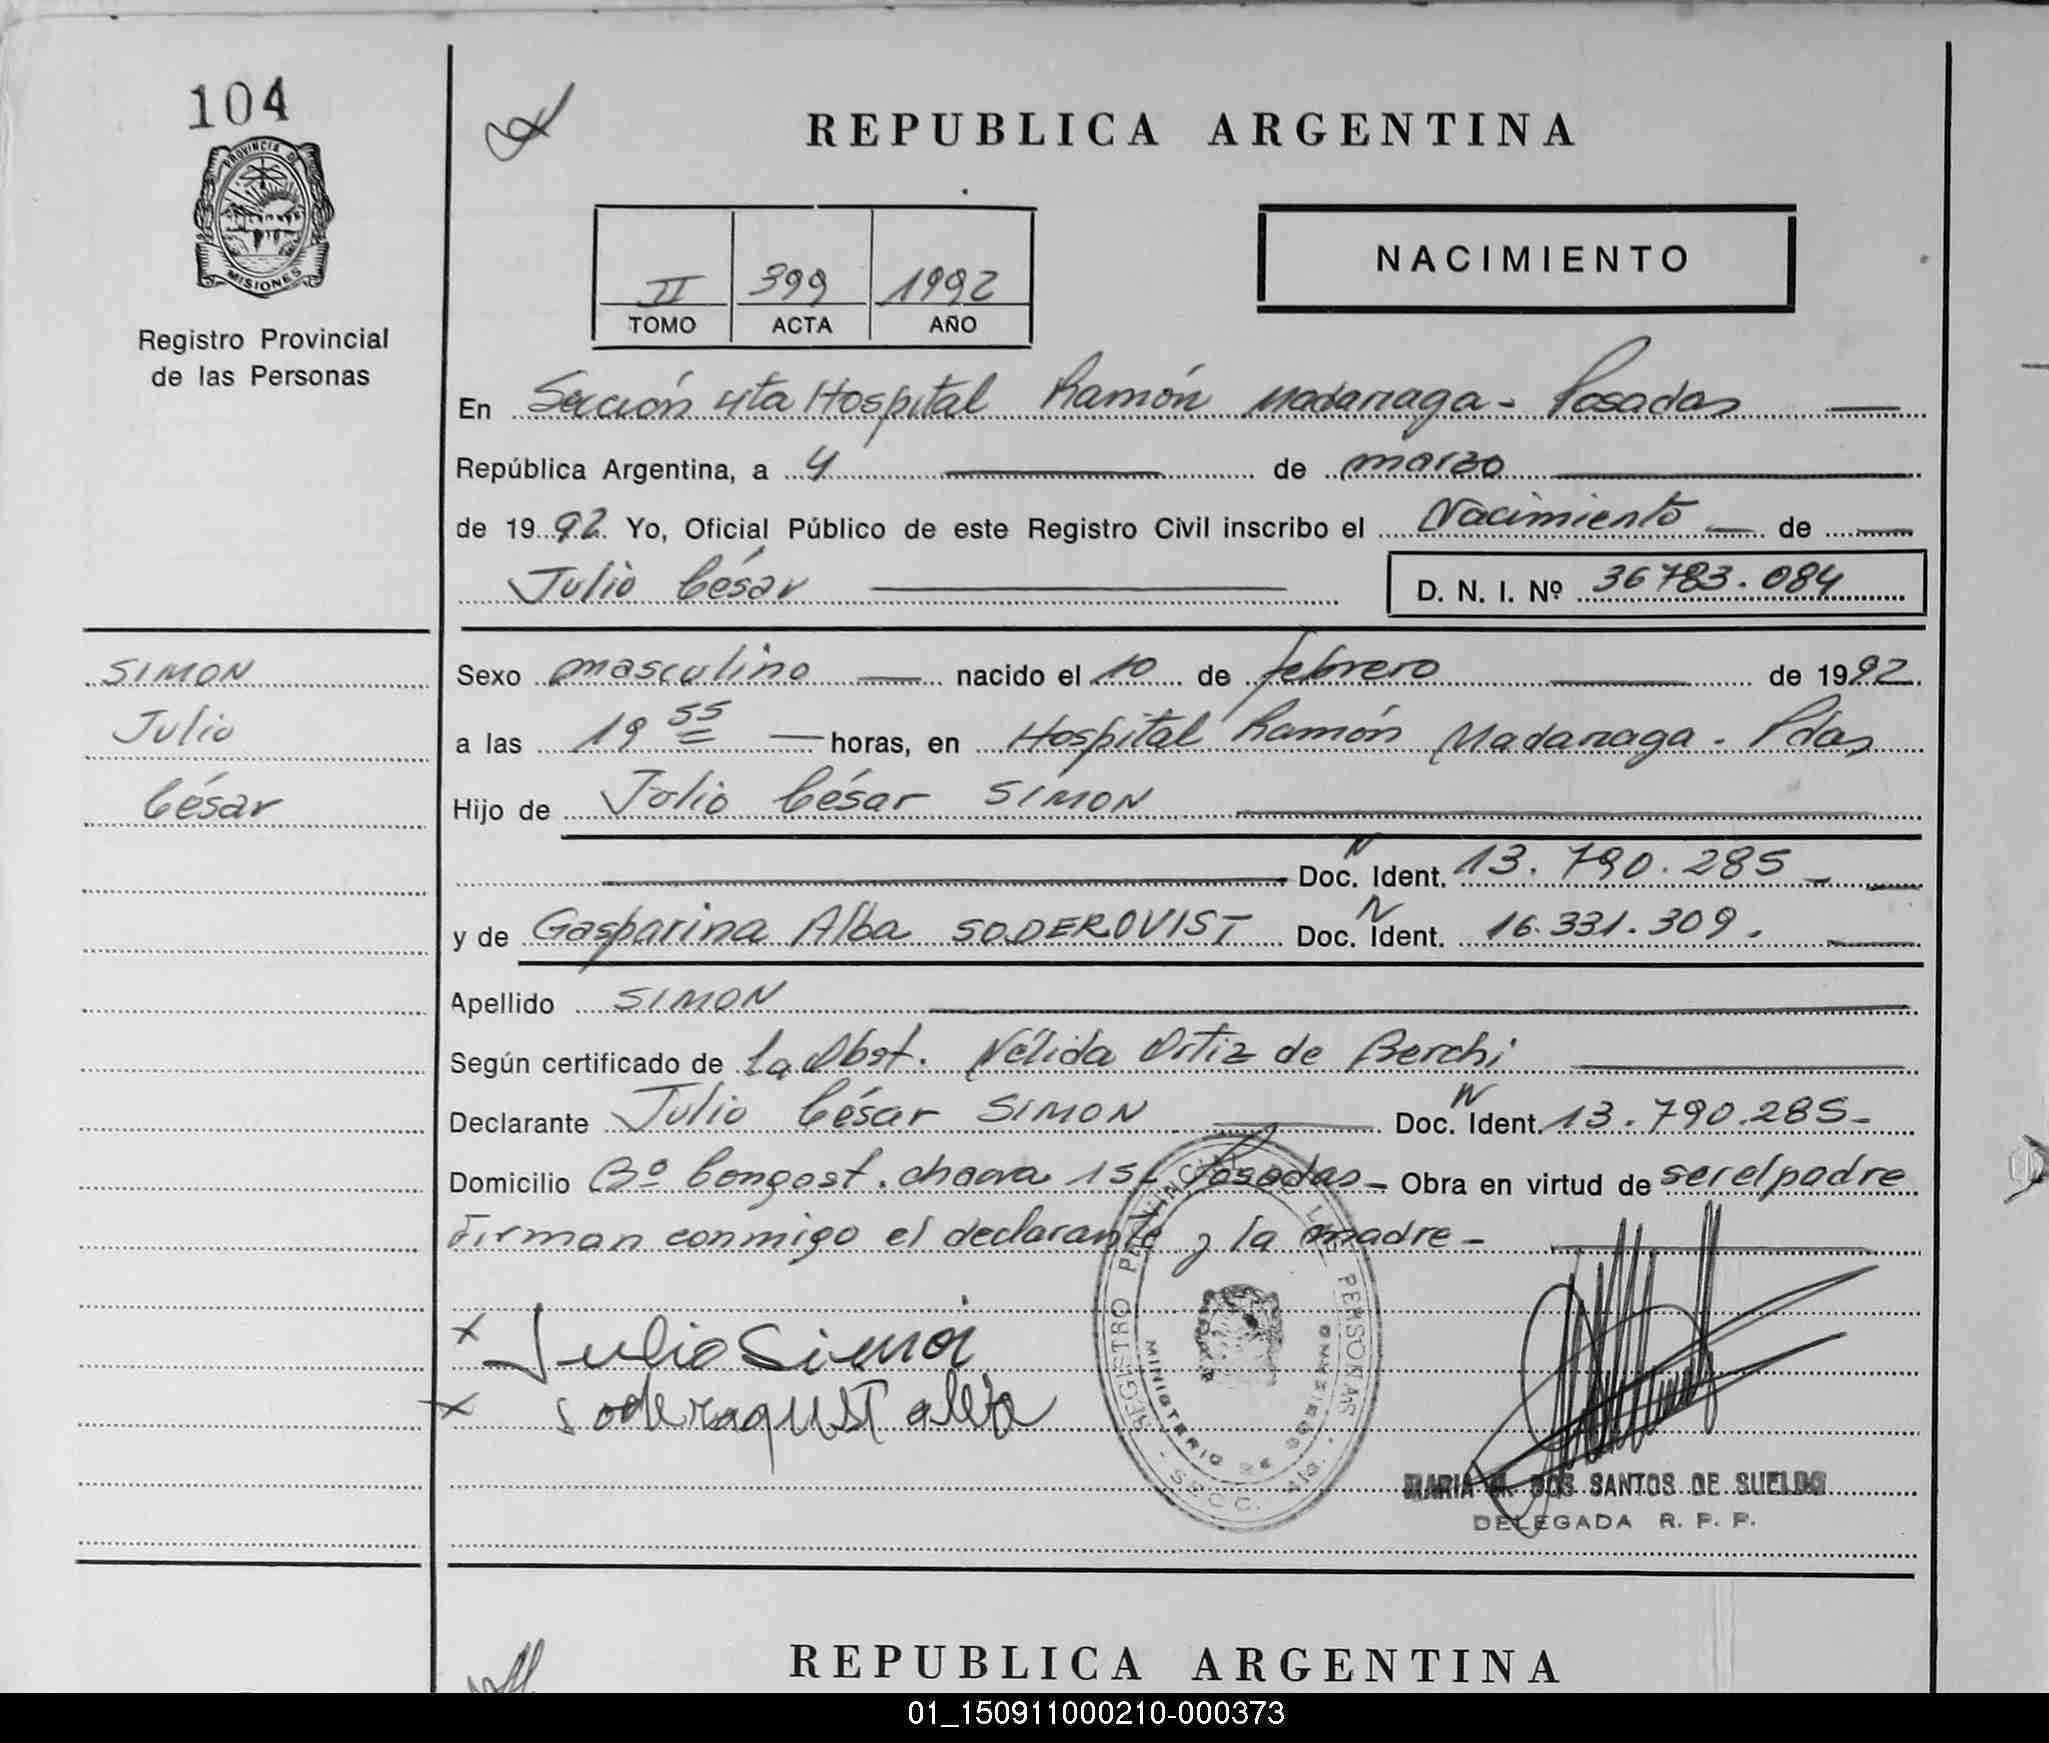 104
PROVINCIA DE
MISIONES
Registro Provincial
de las Personas
REPUBLICA ARGENTINA
II 399 1992
TOMO ACTA AÑO
NACIMIENTO
En Sección 4ta Hospital Ramón Madariaga - Posadas
República Argentina, a 4 de marzo
de 1992 Yo, Oficial Público de este Registro Civil inscribo el Nacimiento de
Julio César D. N. I. Nº 36783.084
SIMON
Julio
César
Sexo masculino nacido el 10 de febrero de 1992
a las 19 55 horas, en Hospital Ramón Madariaga - Pdas
Hijo de Julio César SIMON
N
Doc. Ident. 13.790.285
N
y de Gasparina Alba SODERQVIST Doc. Ident. 16.331.309.
Apellido SIMON
Según certificado de la Obst. Nélida Ortiz de Berchi
N
Declarante Julio César SIMON Doc. Ident. 13.790.285-
Domicilio Bº Congost. chacra 151 Posadas - Obra en virtud de ser el padre
Firman conmigo el declarante y la madre -
x Julio Simon
x Soderaquist alba
REGISTRO PROVINCIAL DE LAS PERSONAS
MINISTERIO DE GOBIERNO
SECC.
MARIA DOS SANTOS DE SUELDO
DELEGADA R. P. P.
REPUBLICA ARGENTINA
01_150911000210-000373